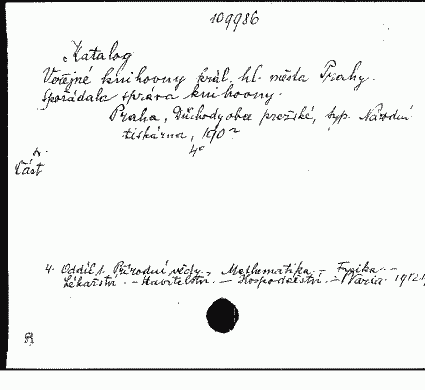 109986
Katalog
Veřejné knihovny král. hl. města Prahy.
Spořádala správa knihovny.
Praha, Důchody obce pražské, typ. Národní
tiskárna, 190?
4°
Část
4. Oddíl 1. Přírodní vědy. – Mathematika. – Fysika. –
Lékařství. – Stavitelství. – Hospodářství. – Varia. 1912